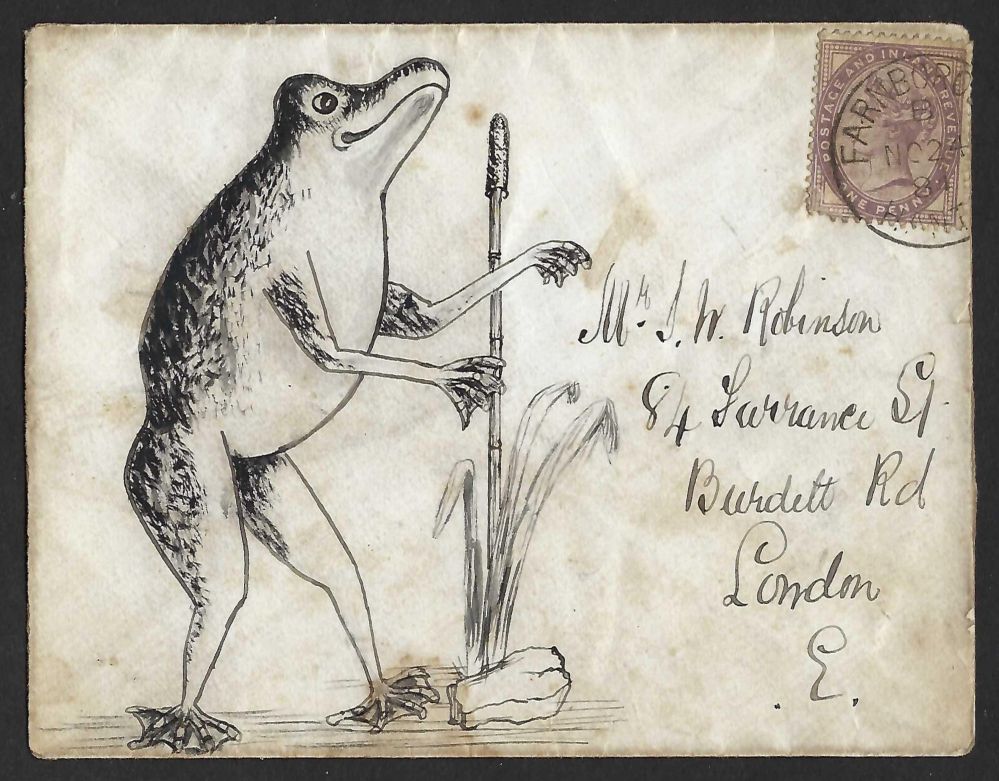 POSTAGE AND INLAND REVENUE
ONE PENNY
FARNBORO
D
NO 24
Mr. J. W. Robinson
84 Turrance St.
Burdett Rd
London
.E.